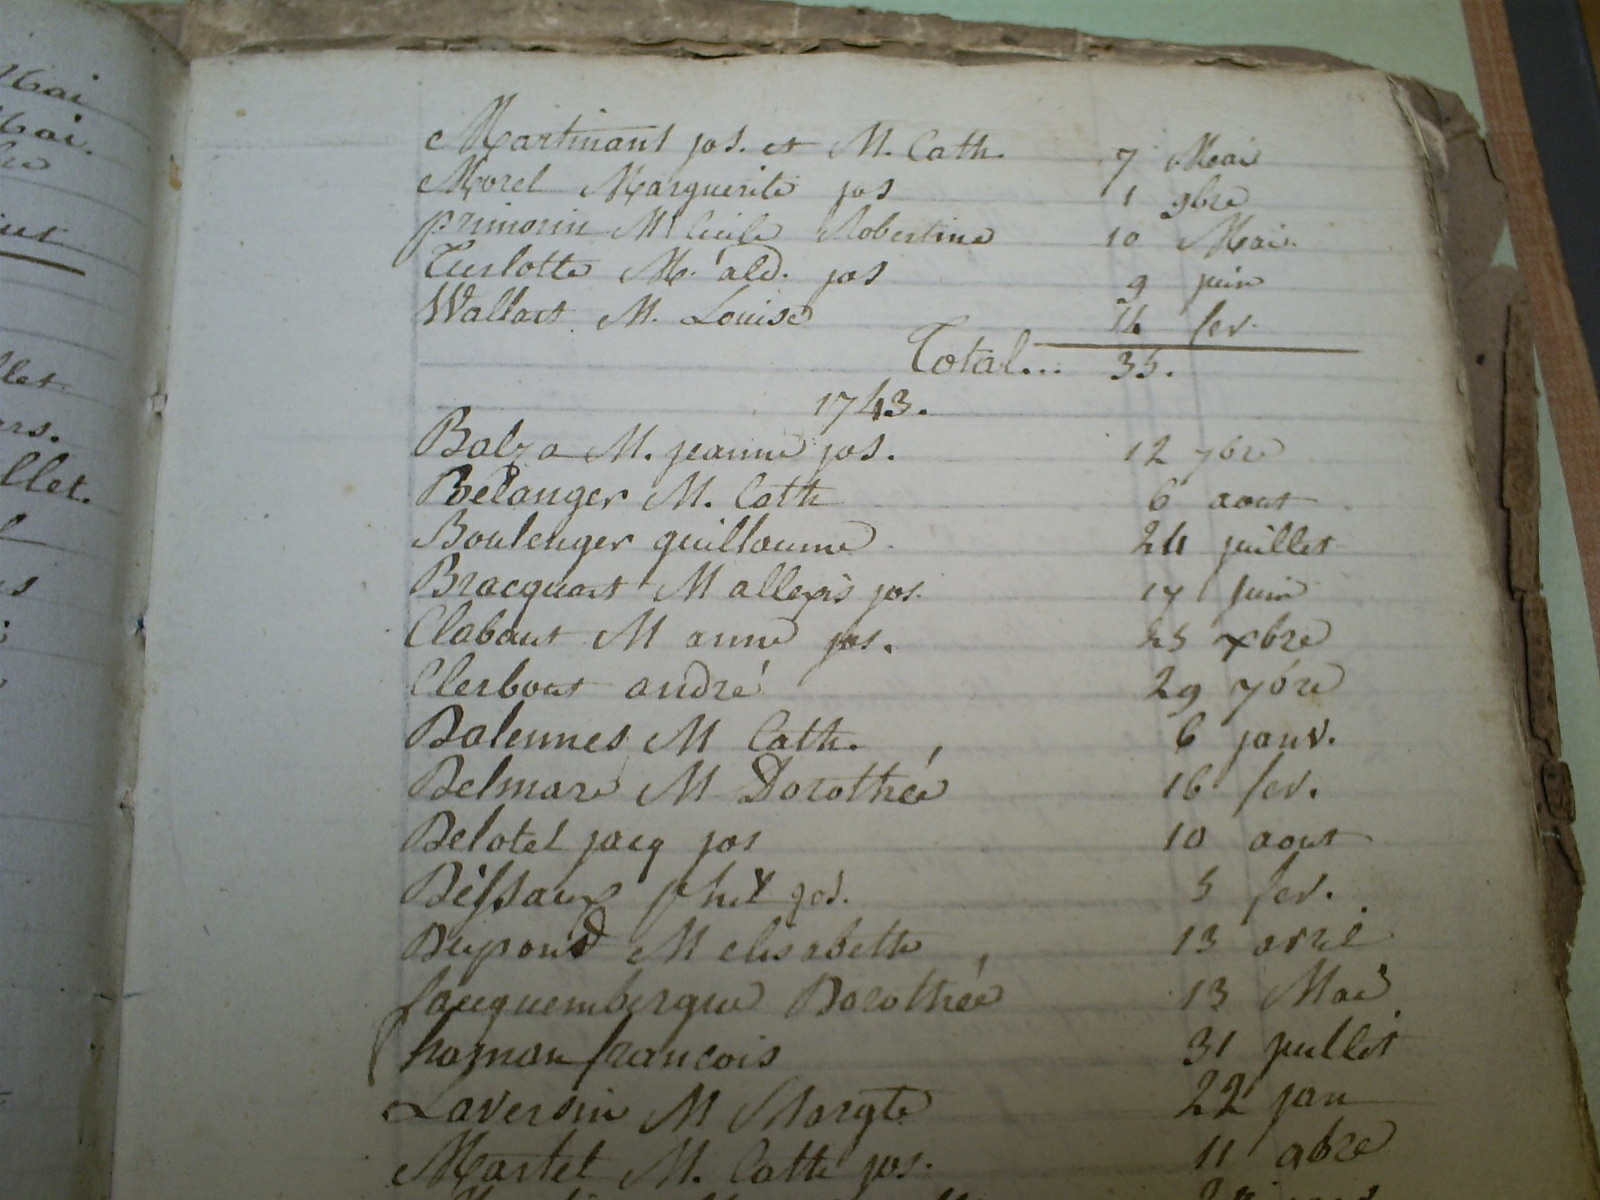 Mai
Mai.
llet
ars.
llet.
Martinant jos. et M. Cath. 7 Mai
Morel Marguerite jos 1 9bre
primorin M Cécile Robertine 10 Mai.
Turlotte M. ald. jos 9 juin
Wallart M. Louise fev.
Total... 35.
1743.
Balza M. jeanne jos. 12 7bre
Bélanger M. Cath 6 aout
Boulenger guillaume 24 juillet
Bracquart M allexis jos. 17 juin
Clabaut M anne jos. 25 xbre
Clerbout andré 29 7bre
Dalennes M Cath. 6 janv.
Delmare M Dorothée 16 fev.
Delotel jacq jos 10 aout
Déssaux jos. 5 fev.
Dupond M elisabeth 13 avril
fauquembergue Dorothée 13 Mai
françois 31 juillet
Laversin M Margte 22 jan
Martel M. Cath jos. 11 9bre